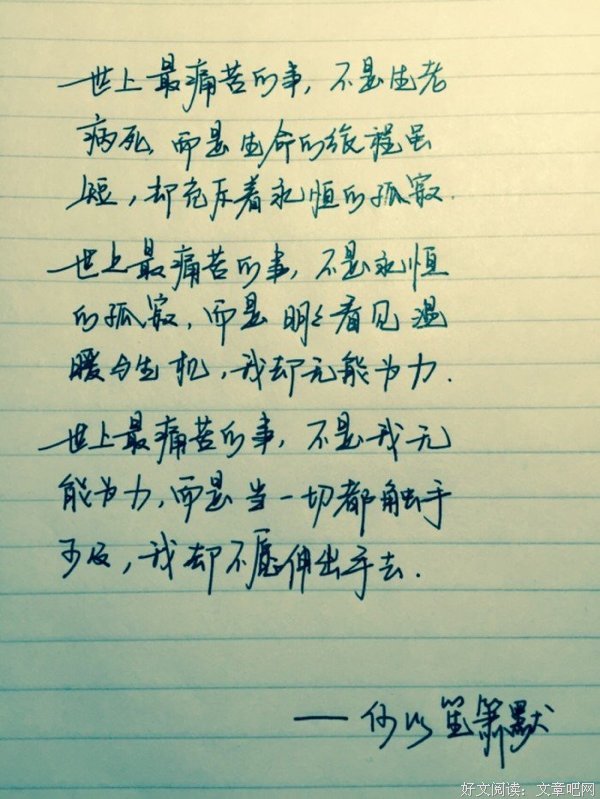 世上最痛苦的事，不是生老
病死，而是生命的旅程虽
短，却充斥着永恒的孤寂.
世上最痛苦的事，不是永恒
的孤寂，而是明明看见温
暖与生机，我却无能为力.
世上最痛苦的事，不是我无
能为力，而是当一切都触手
可及，我却不愿伸出手去.
——何以笙箫默
好文阅读：文章吧网